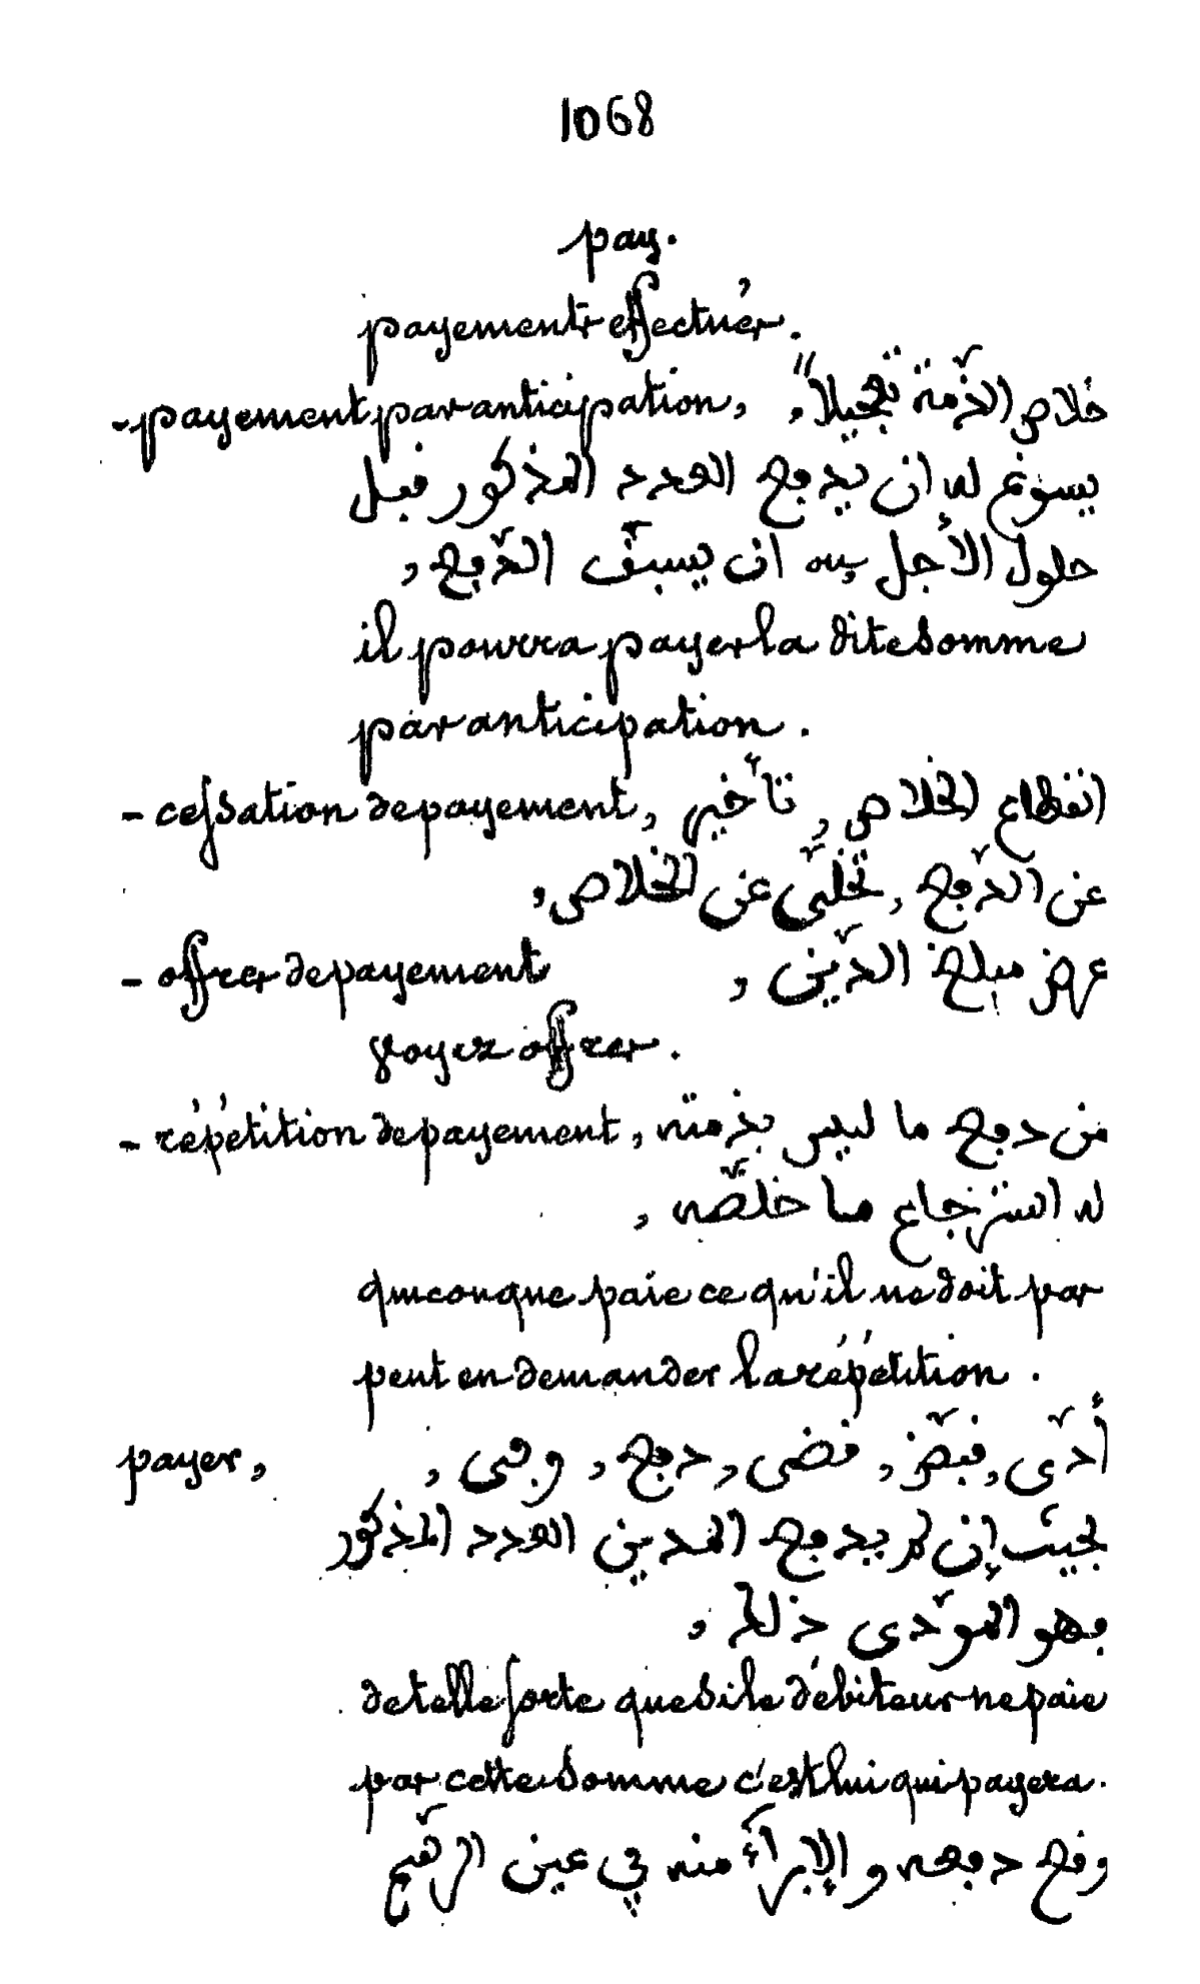 1068
pay.
payements effectués.
- payement par anticipation, خلاص الذّمّة تعجيلاً،
يسوغ له ان يدفع العدد المذكور قبل
حلول الأجل، له ان يسبّق الدّفع,
il pourra payer la dite somme
par anticipation.
- cessation de payement, انقطاع الخلاص, تأخير
عن الدّفع, تخلّى عن الخلاص,
- offres de payement عرض مبلغ الدّين,
voyez offres.
- répétition de payement, من دفع ما ليس بذمّته
له استرجاع ما خلّصه,
quiconque paie ce qu'il ne doit pas
peut en demander la répétition.
payer, أدّى, قبّض, قضى, دفع, وفى,
بحيث إن لم يدفع المدين العدد المذكور
فهو المؤدّى ذلك,
de telle sorte que si le débiteur ne paie
pas cette somme c'est lui qui payera.
وقع دفعه و الإبرأ منه في عين الرّقيم